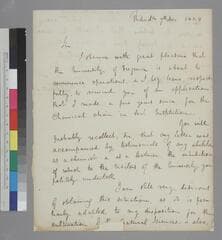 Sir
I observe with great pleasure that
the University of Virginia is about to
commence operations, and I beg leave respect
fully to remind you of an application
that I made a few years since for the
Chemical chair in that Institution.
You will
probably recollect, Sir, that my letter was
accompanied by testimonials of my ability
as a chemist & as a lecturer, the exhibition
of which to the Visitors of the University you
politely undertook
I am still very desirous
of obtaining this situation, as it is peculiarly
adapted to my disposition for the
cultivation of natural science &